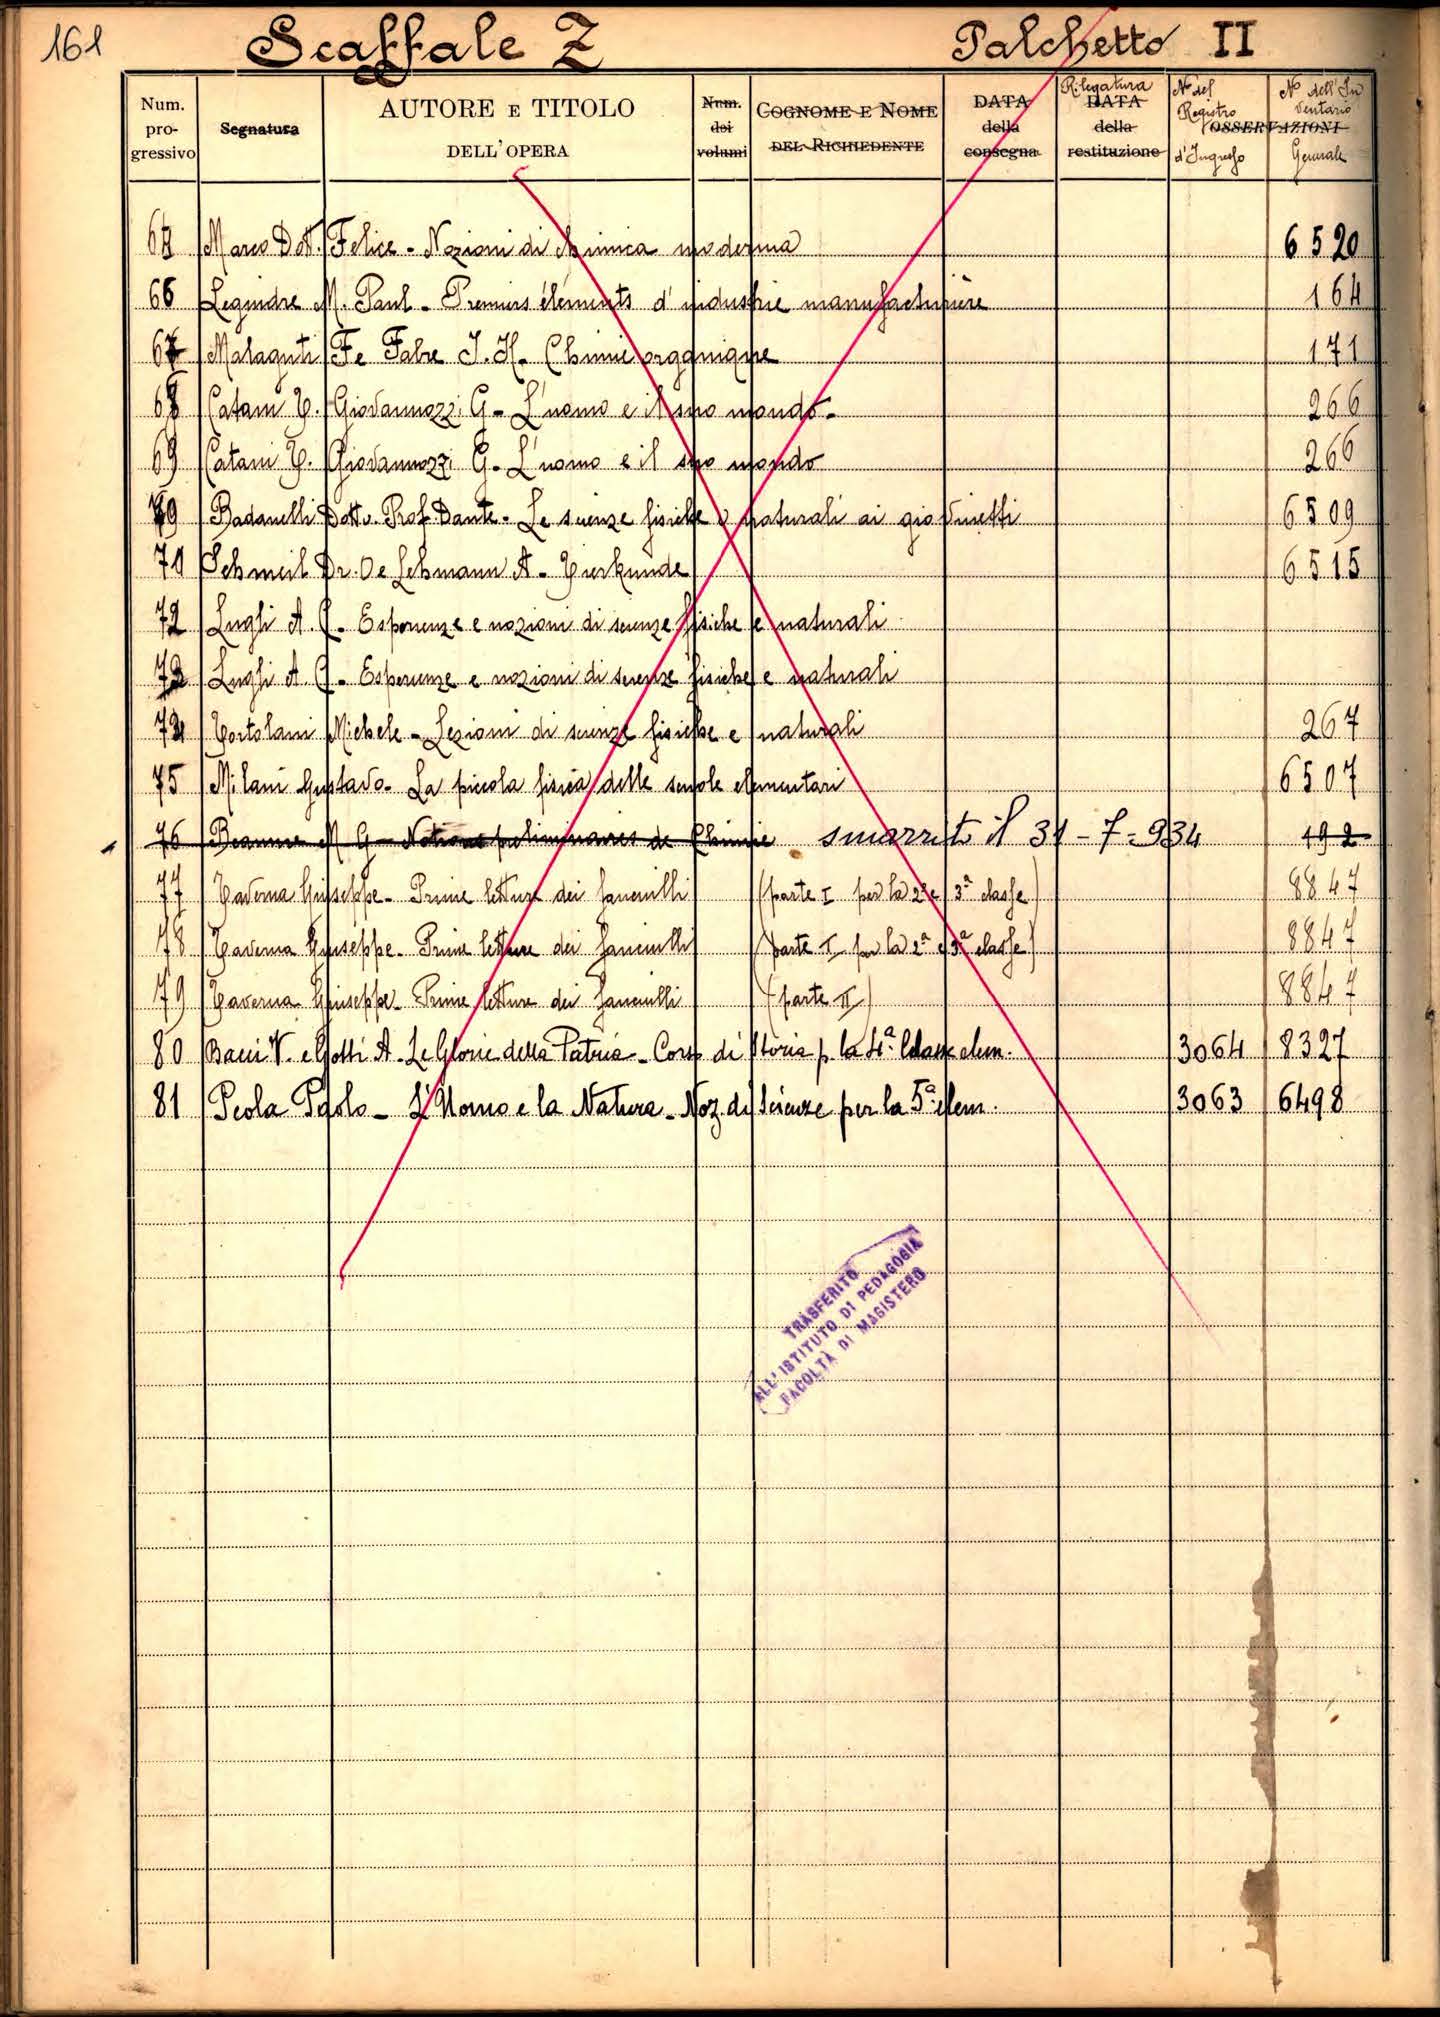 161 Scaffale Z Palchetto II
Num. progressivo Segnatura AUTORE E TITOLO DELL'OPERA Num. dei volumi COGNOME E NOME DEL RICHIEDENTE DATA della consegna Rilegatura DATA della restituzione N° del Registro d'Ingresso OSSERVAZIONI N° dell'Inventario Generale
Marco Dott. Felice - Nozioni di chimica moderna 6520
66 Legendre M. Paul - Premiers éléments d'industrie manufacturière 164
67 Malaguti F e Fabre J. H. Chimie organique 171
68 Catani T. Giovannozzi G - L'uomo e il suo mondo - 266
69 Catani T. Giovannozzi G - L'uomo e il suo mondo 266
Badanelli Dott. Prof. Dante - Le scienze fisiche e naturali ai giovinetti 6509
Schmeil Dr. O e Lehmann A - Tierkunde 6515
72 Lughi A. C. - Esperienze e nozioni di scienze fisiche e naturali
Lughi A. C. - Esperienze e nozioni di scienze fisiche e naturali
Tortolani Michele - Lezioni di scienze fisiche e naturali 267
75 Milani Gustavo - La piccola fisica delle scuole elementari 6507
76 M G - Notions preliminaires de Chimie smarrito il 31-7-934 192
77 Taverna Giuseppe - Prime letture dei fanciulli (parte I per la 2ª e 3ª classe) 8847
78 Taverna Giuseppe - Prime letture dei fanciulli (parte I per la 2ª e 3ª classe) 8847
79 Taverna Giuseppe - Prime letture dei fanciulli (parte II) 8847
80 Bacci V. e Gotti A - Le Glorie della Patria - Corso di Storia p. la 4ª Classe elem. 3064 8327
81 Peola Paolo - L'Uomo e la Natura - Noz. di Scienze per la 5ª elem. 3063 6498
TRASFERITO
ALL'ISTITUTO DI PEDAGOGIA
FACOLTÀ DI MAGISTERO